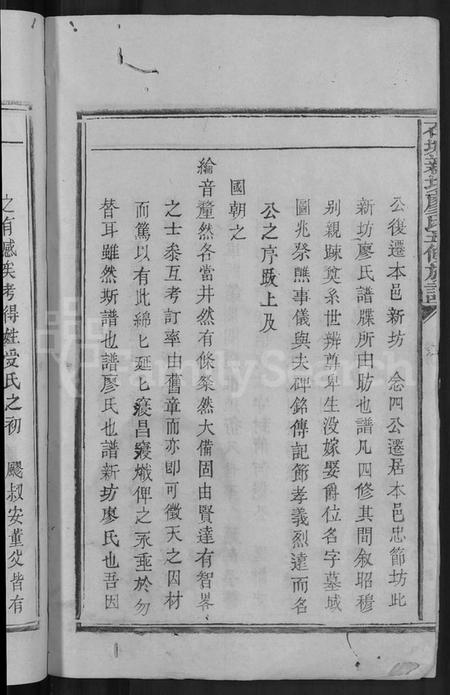 石城新坊廖氏五修族譜
公復遷本邑新坊　念四公遷居本邑忠節坊此
新坊廖氏譜牒所由昉也譜凡四修其間叙昭穆
别親踈奠系世辨尊卑生没嫁娶爵位名字墓域
圖兆祭醮事儀與夫碑銘傳記節孝義烈達而名
公之序跋上及
國朝之
綸音釐然各當井然有條粲然大備固由賢達有智畧
之士叅互考訂率由舊章而亦卽可徵天之因材
而篤以有此綿匕延匕寖昌寖熾俾之永垂於勿
替耳雖然斯譜也譜廖氏也譜新坊廖氏也吾因
之有感矣考得姓受氏之初　飂叔安董父皆有
FamilySearch